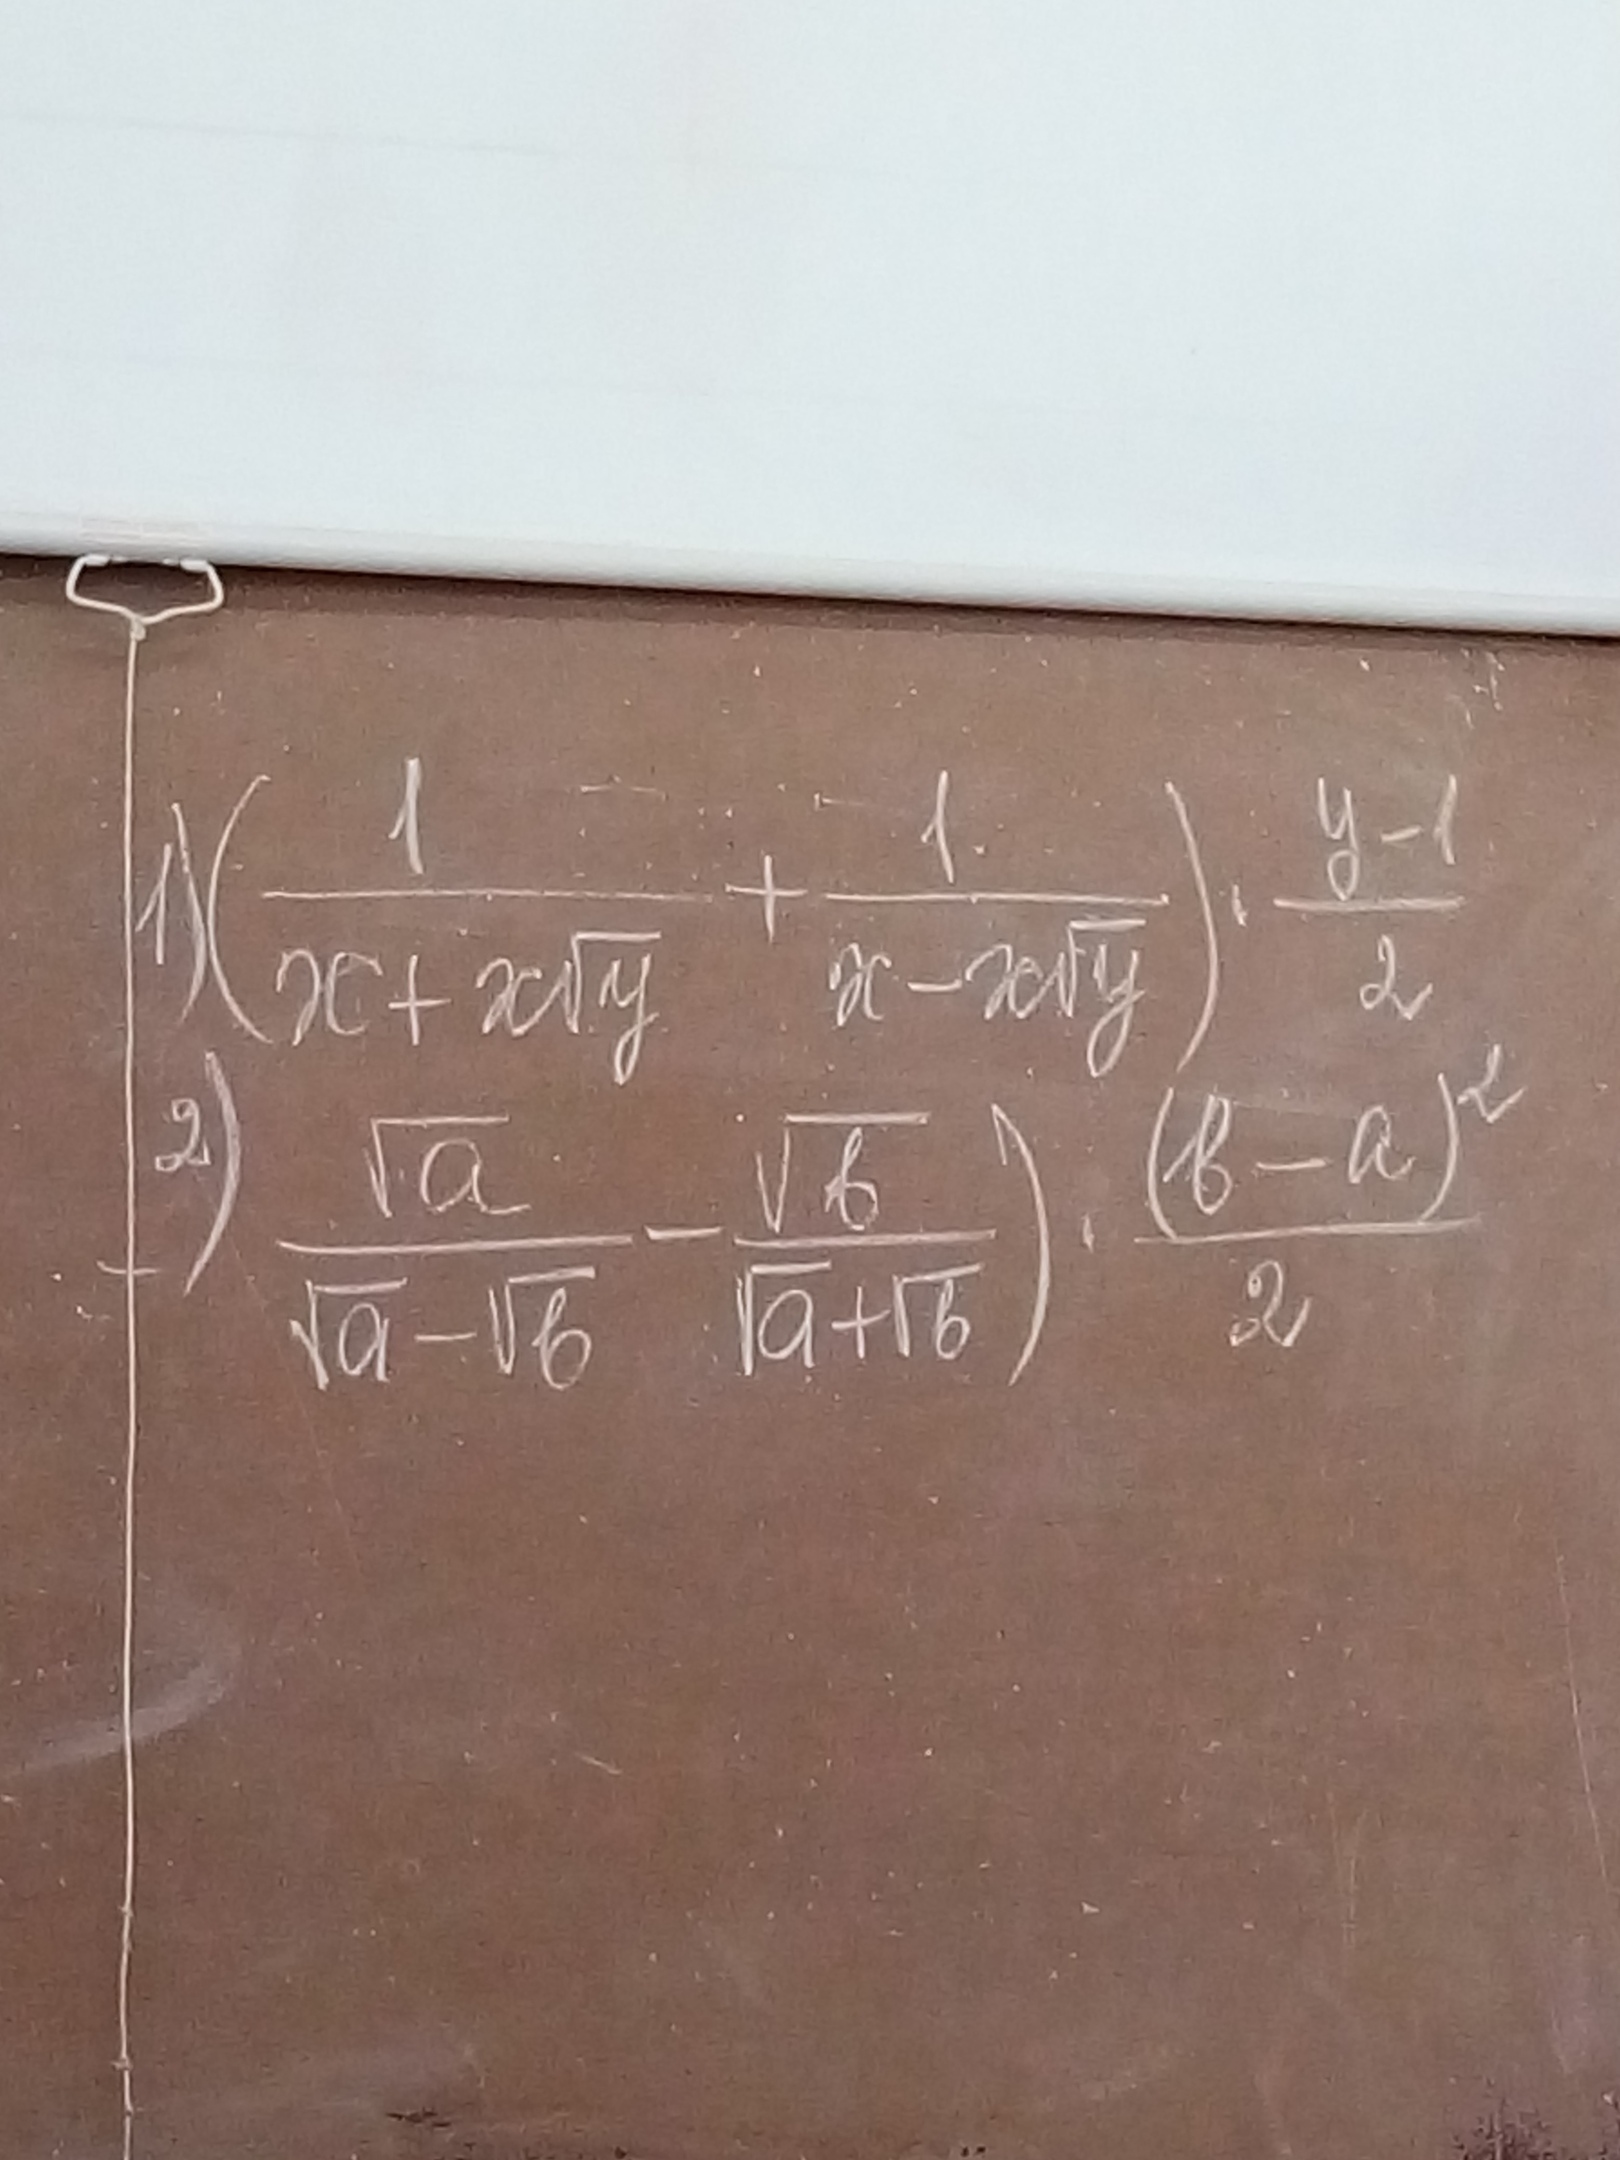 1) ( 1/(x+x√y) + 1/(x-x√y) ) · (y-1)/2
2) √a/(√a-√b) - √b/(√a+√b) ) · (b-a)²/2